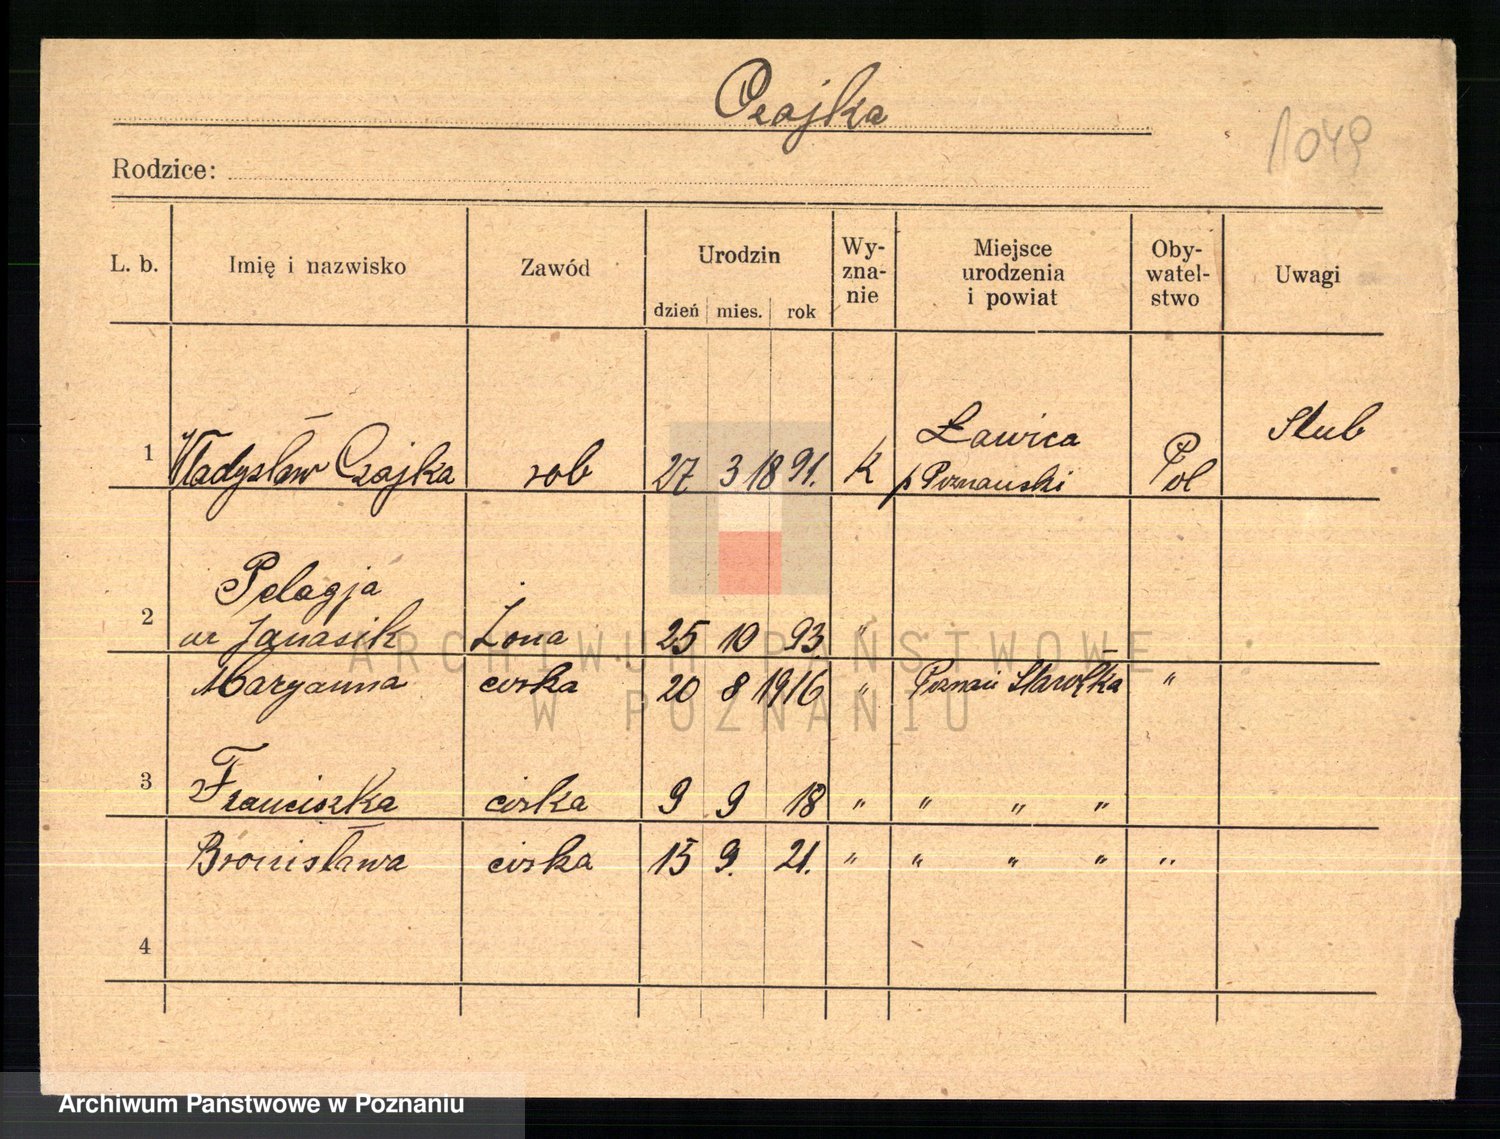 Czajka
1049
Rodzice:
L. b. Imię i nazwisko Zawód Urodzin dzień mies. rok Wy-zna-nie Miejsce urodzenia i powiat Oby-watel-stwo Uwagi
1 Władysław Czajka rob 27 3 1891. K Ławica p Poznański Pol Slub
2 Pelagja
ur Janasik Żona 25 10 93 "
Maryanna corka 20 8 1916 " Poznań Starołka "
3 Franciszka corka 9 9 18 " " " "
Bronisława corka 15 9. 21. " " " " "
4
ARCHIWUM PAŃSTWOWE
W POZNANIU
Archiwum Państwowe w Poznaniu